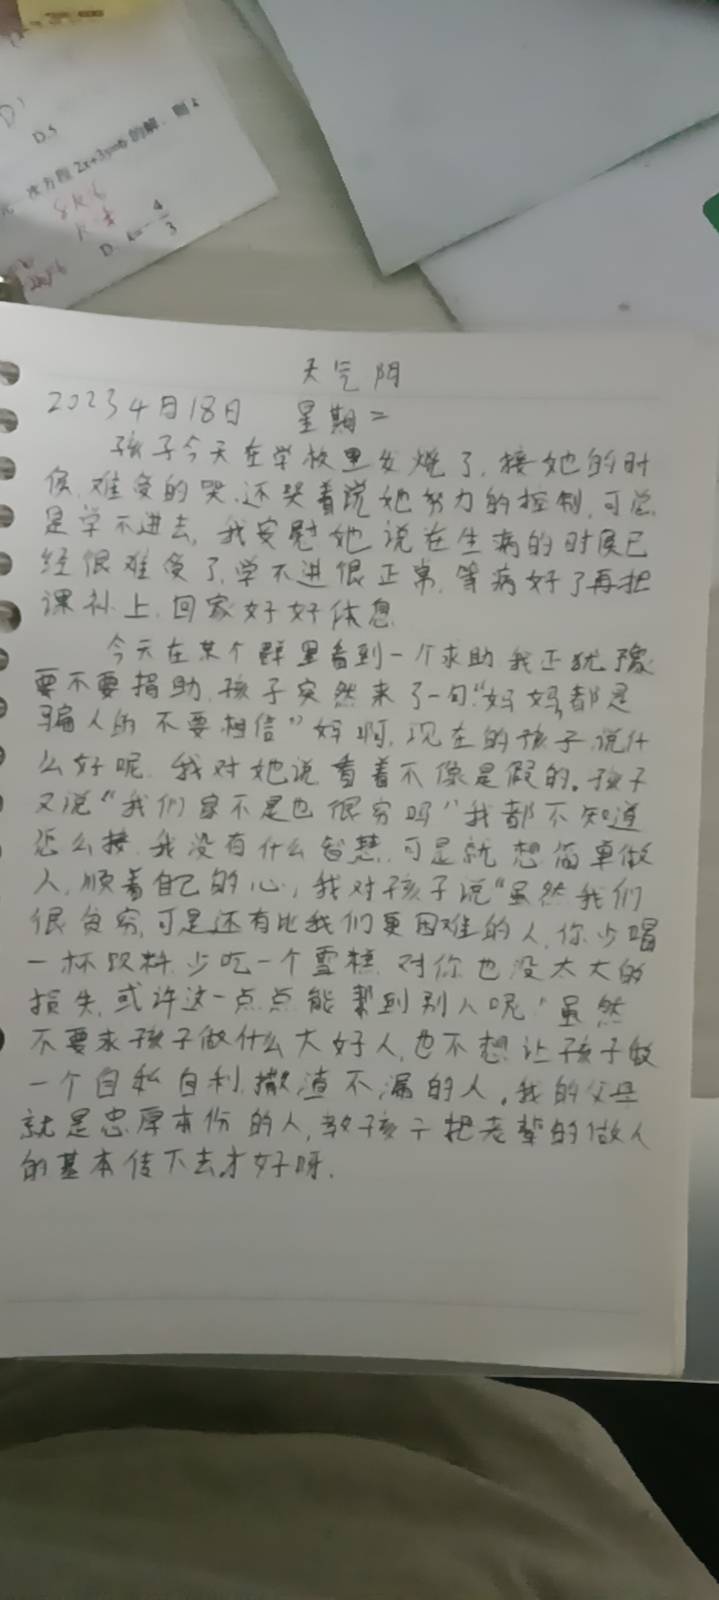 D.5
次方程2x+3y=6的解，则k
8k=6
D. k=-4/3
天气阴
2023 4月18日 星期二
孩子今天在学校里发烧了，接她的时
侯，难受的哭，还哭着说她努力的控制，可总
是学不进去，我安慰她说在生病的时侯已
经很难受了，学不进很正常，等病好了再把
课补上，回家好好休息
今天在某个群里看到一个求助我正犹豫
要不要捐助，孩子突然来了一句："妈妈，都是
骗人的不要相信"妈啊，现在的孩子，说什
么好呢，我对她说看着不像是假的。孩子
又说"我们家不是也很穷吗"我都不知道
怎么接，我没有什么智慧，可是就想简单做
人，顺着自己的心，我对孩子说"虽然我们
很贫穷，可是还有比我们更困难的人，你少喝
一杯饮料，少吃一个雪糕，对你也没太大的
损失，或许这一点点能帮到别人呢'虽然
不要求孩子做什么大好人，也不想让孩子做
一个自私自利，撒渣不漏的人。我的父母
就是忠厚本份的人，教孩子把老辈的做人
的基本传下去才好呀．